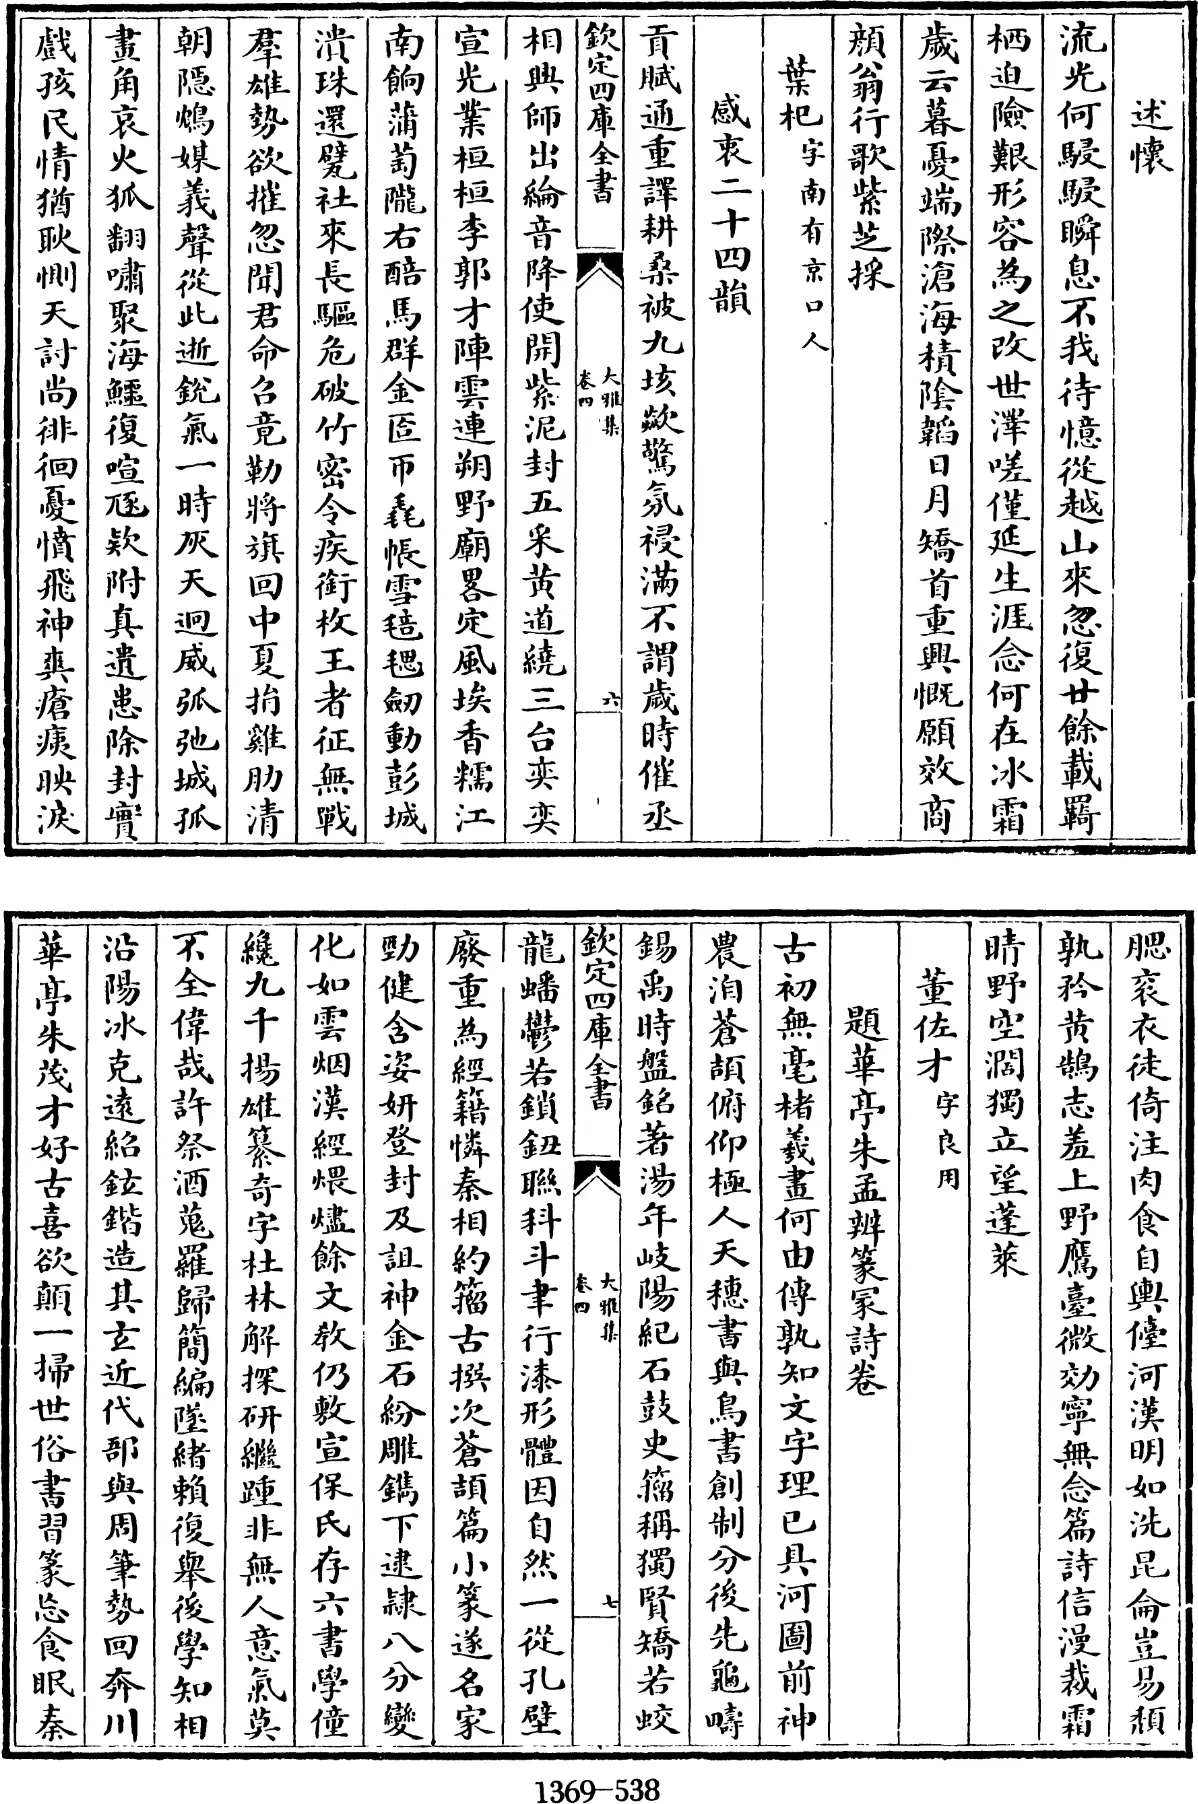 述懷
流光何駸駸瞬息不我待憶從越山來忽復廿餘載羇
栖迫險艱形容為之改世澤嗟僅延生涯念何在冰霜
歲云暮憂端際滄海積陰韜日月矯首重興慨願效商
顔翁行歌紫芝採
葉杞字南有京口人
感衷二十四韻
貢賦通重譯耕桑被九垓歘驚氛祲滿不謂歲時催丞
欽定四庫全書
大雅集
卷四
六
相興師出綸音降使開紫泥封五采黄道繞三台奕奕
宣光業桓桓李郭才陣雲連朔野廟畧定風埃香糯江
南餉蒲萄隴右醅馬群金匝帀毳帳雪毰毸劒動彭城
潰珠還甓社來長驅危破竹密令疾銜枚王者征無戰
羣雄勢欲摧忽聞君命召竟勒將旗回中夏捐雞肋清
朝隱鴆媒義聲從此逝銳氣一時灰天迥威弧弛城孤
畫角哀火狐翻嘯聚海鱷復喧豗欵附真遺患除封實
戲孩民情猶耿惻天討尚徘徊憂憤飛神爽瘡痍映淚
腮衮衣徒倚注肉食自輿儓河漢明如洗昆侖豈易頹
孰矜黄鵠志羞上野鷹臺微効寧無念篇詩信漫裁霜
晴野空濶獨立望蓬萊
董佐才字良用
題華亭朱孟辨篆冡詩卷
古初無亳楮羲畫何由傳孰知文字理已具河圖前神
農洎蒼頡俯仰極人天穗書與鳥書創制分後先龜疇
錫禹時盤銘著湯年岐陽紀石鼓史籀稱獨賢矯若蛟
欽定四庫全書
大雅集
卷四
七
龍蟠鬱若鎖鈕聯科斗聿行漆形體因自然一從孔壁
廢重為經籍憐秦相約籀古撰次蒼頡篇小篆遂名家
勁健含姿妍登封及詛神金石紛雕鐫下逮隸八分變
化如雲烟漢經煨燼餘文敎仍敷宣保氏存六書學僮
纔九千揚雄纂奇字杜林解探研繼踵非無人意氣莫
不全偉哉許祭酒蒐羅歸簡編墜緒賴復舉後學知相
沿陽冰克遠紹鉉鍇造其玄近代郚與周筆勢回奔川
華亭朱茂才好古喜欲顛一掃世俗書習篆忘食眠秦
1369-538